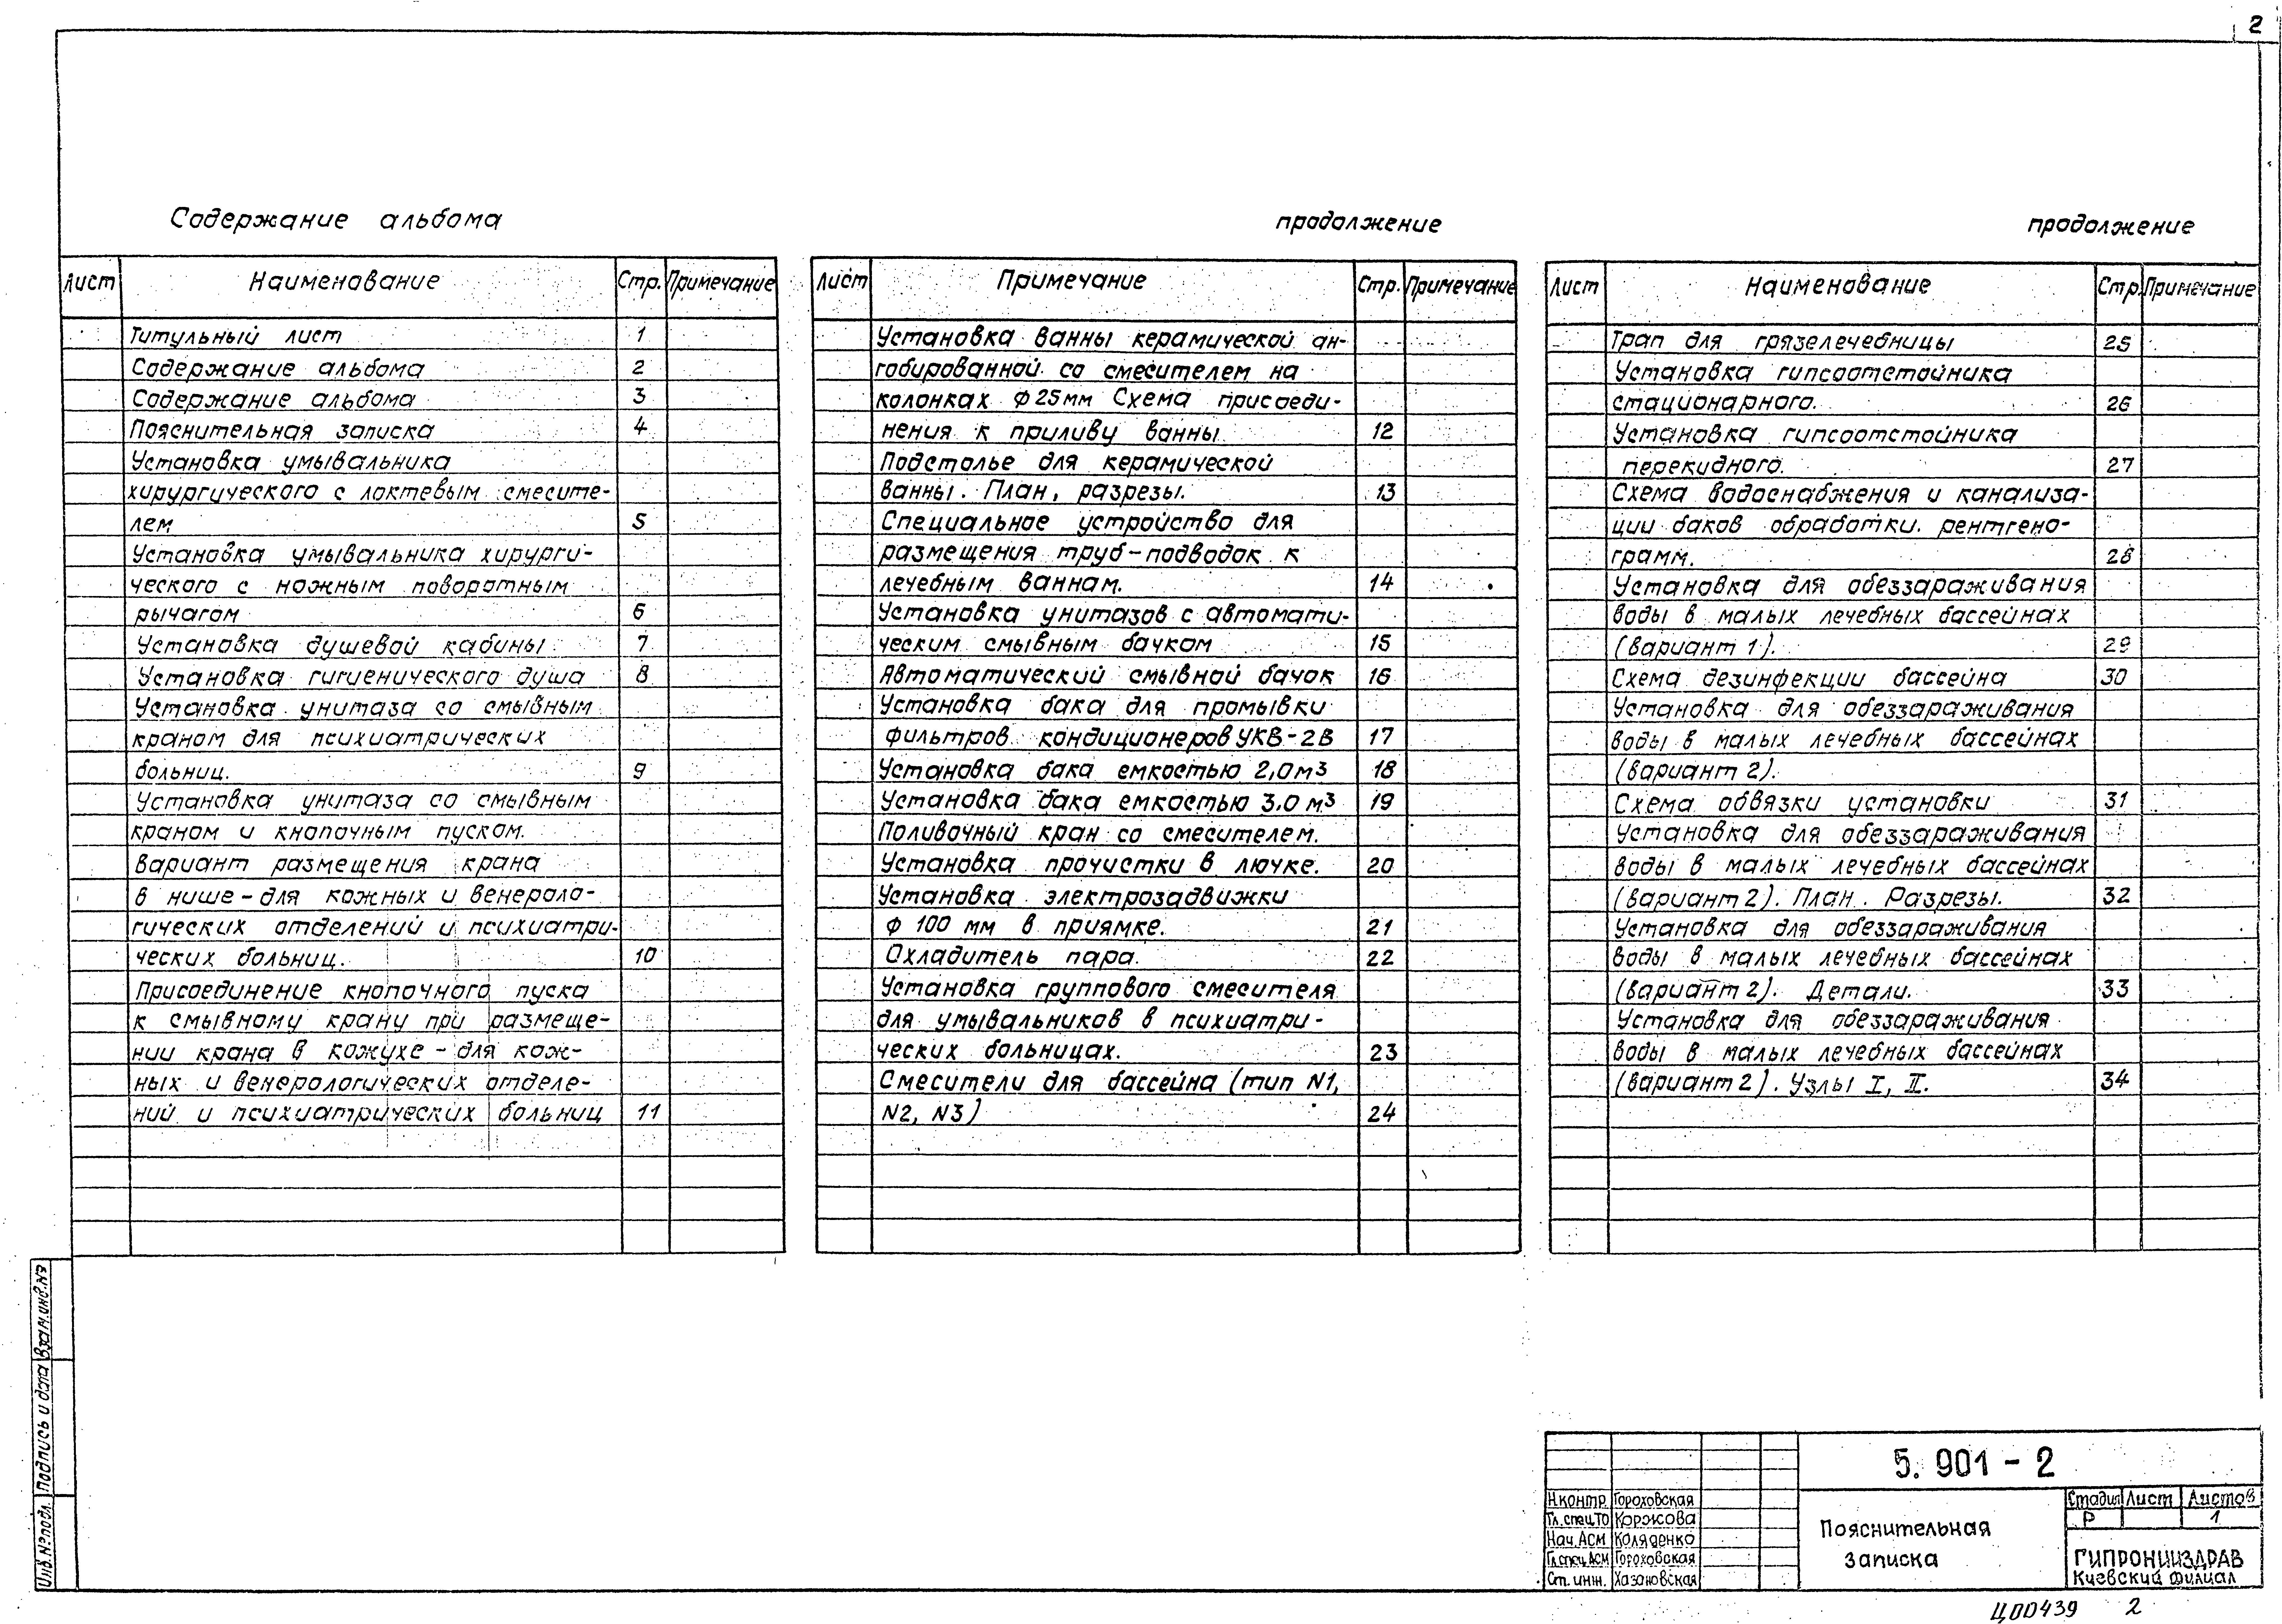 2
Содержание альбома
Лист Наименование Стр. Примечание
Титульный лист 1
Содержание альбома 2
Содержание альбома 3
Пояснительная записка 4
Установка умывальника
хирургического с локтевым смесите-
лем 5
Установка умывальника хирурги-
ческого с ножным поворотным
рычагом 6
Установка душевой кабины 7
Установка гигиенического душа 8
Установка унитаза со смывным
краном для психиатрических
больниц. 9
Установка унитаза со смывным
краном и кнопочным пуском.
Вариант размещения крана
в нише - для кожных и венероло-
гических отделений и психиатри-
ческих больниц. 10
Присоединение кнопочного пуска
к смывному крану при размеще-
нии крана в кожухе - для кож-
ных и венерологических отделе-
ний и психиатрических больниц 11
продолжение
Лист Примечание Стр. Примечание
Установка ванны керамической ан-
гобированной со смесителем на
колонках ф 25мм Схема присоеди-
нения к приливу ванны 12
Подстолье для керамической
ванны. План, разрезы. 13
Специальное устройство для
размещения труб-подводок к
лечебным ваннам. 14
Установка унитазов с автомати-
ческим смывным бачком 15
Автоматический смывной бачок 16
Установка бака для промывки
фильтров кондиционеров УКВ-2В 17
Установка бака емкостью 2,0 м3 18
Установка бака емкостью 3.0 м3 19
Поливочный кран со смесителем.
Установка прочистки в лючке. 20
Установка электрозадвижки
ф 100 мм в приямке. 21
Охладитель пара. 22
Установка группового смесителя
для умывальников в психиатри-
ческих больницах. 23
Смесители для бассейна (тип N1,
N2, N3) 24
продолжение
Лист Наименование Стр. Примечание
Трап для грязелечебницы 25
Установка гипсоотстойника
стационарного. 26
Установка гипсоотстойника
перекидного. 27
Схема водоснабжения и канализа-
ции баков обработки рентгено-
грамм. 28
Установка для обеззараживания
воды в малых лечебных бассейнах
(вариант 1). 29
Схема дезинфекции бассейна 30
Установка для обеззараживания
воды в малых лечебных бассейнах
(вариант 2).
Схема обвязки установки 31
Установка для обеззараживания
воды в малых лечебных бассейнах
(вариант 2). План. Разрезы. 32
Установка для обеззараживания
воды в малых лечебных бассейнах
(вариант 2). Детали. 33
Установка для обеззараживания
воды в малых лечебных бассейнах
(вариант 2). Узлы I, II. 34
Взам.инв.№
Подпись и дата
Инв.№ подл.
5.901-2
Н.контр. Гороховская
Гл.спец.ТО Коржова
Нач.АСМ Коляденко
Гл.спец.АСМ Гороховская
Ст. инж. Хазановская
Пояснительная
записка
Стадия Лист Листов
Р 1
ГИПРОНИИЗДРАВ
Киевский филиал
Ц00439 2